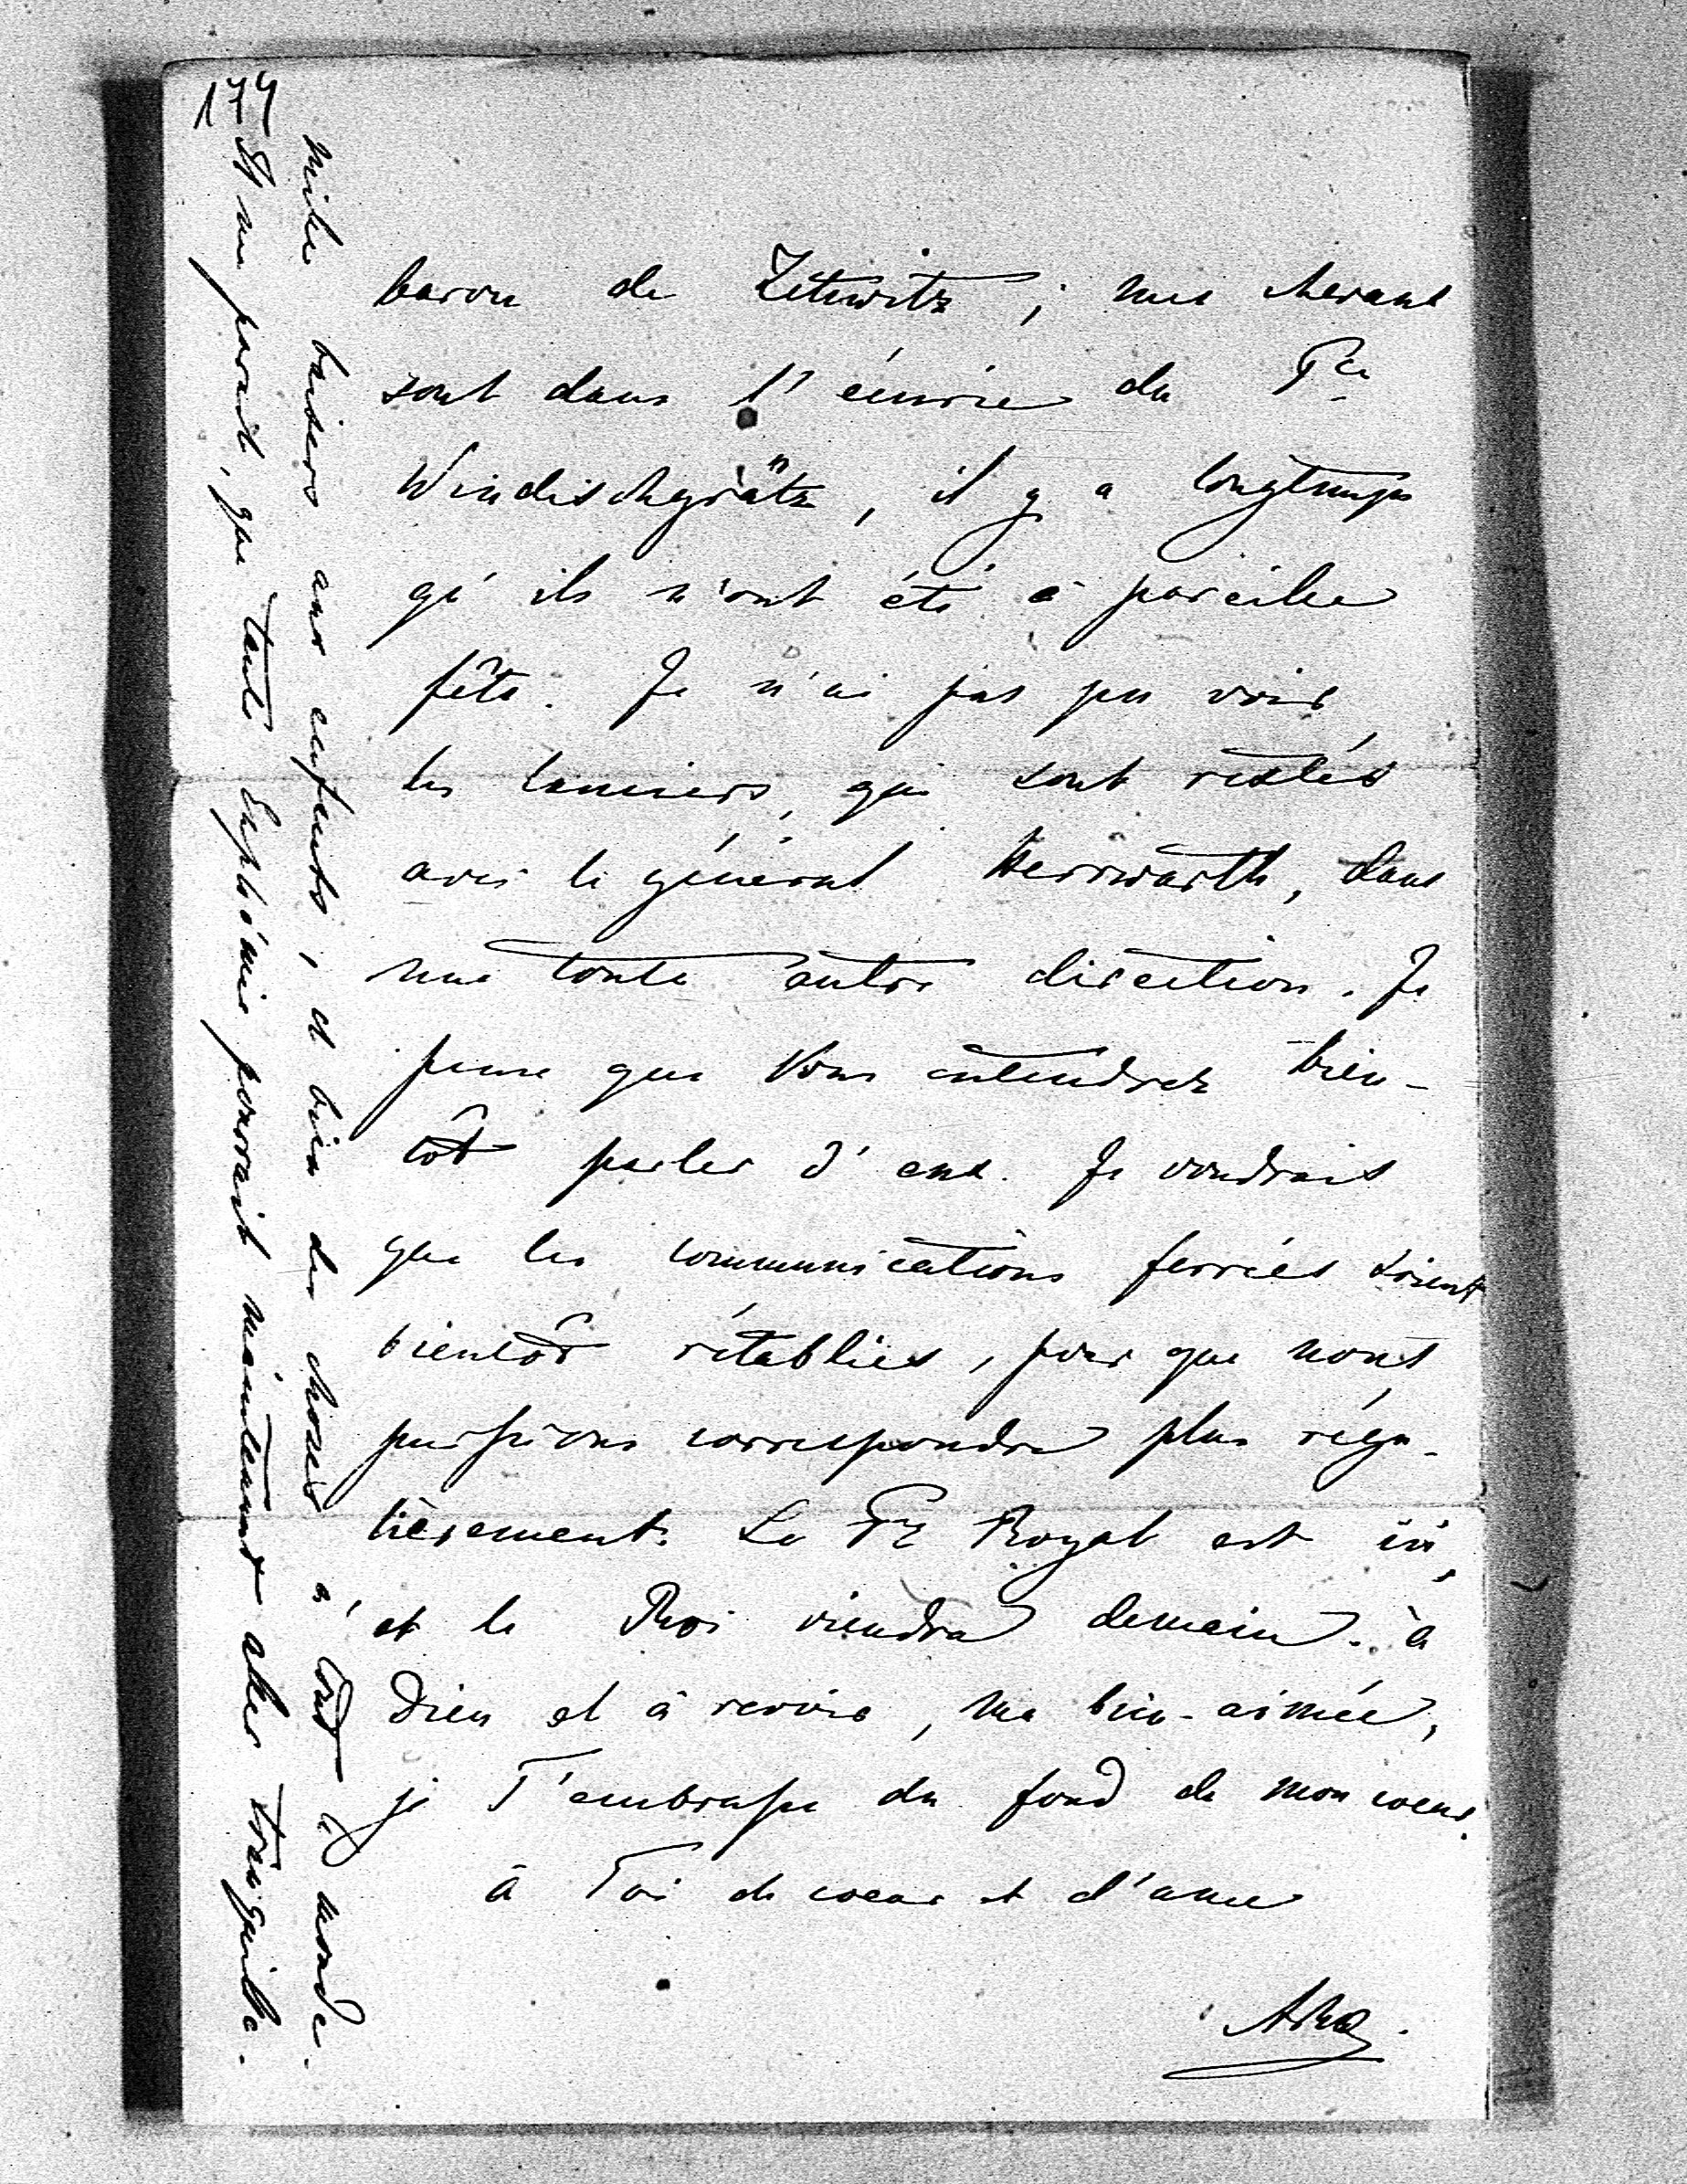 174
baron de Zetwitz ; mes chevaux
sont dans l'écurie du Pce
Windischgrätz, il y a longtemps
qu'ils n'ont été à pareille
fête. Je n'ai pas pu voir
les lanciers, qui sont restés
avec le général Herrwarth, dans
une toute autre direction. Je
pense que Vous entendrez bien-
tôt parler d'eux. Je voudrais
que les communications ferrées soient
bientôt rétablies, pour que nous
puissions correspondre plus régu-
lièrement. Le Pce Royal est ici,
et le Roi viendra demain. à
Dieu et à revoir, ma bien-aimée,
je T'embrasse du fond de mon coeur.
à Toi de coeur et d'ame
mille baisers aux enfants, et bien des choses à tout le monde.
Il me parait, que tante Euphémie pourrait maintenant aller tranquille.